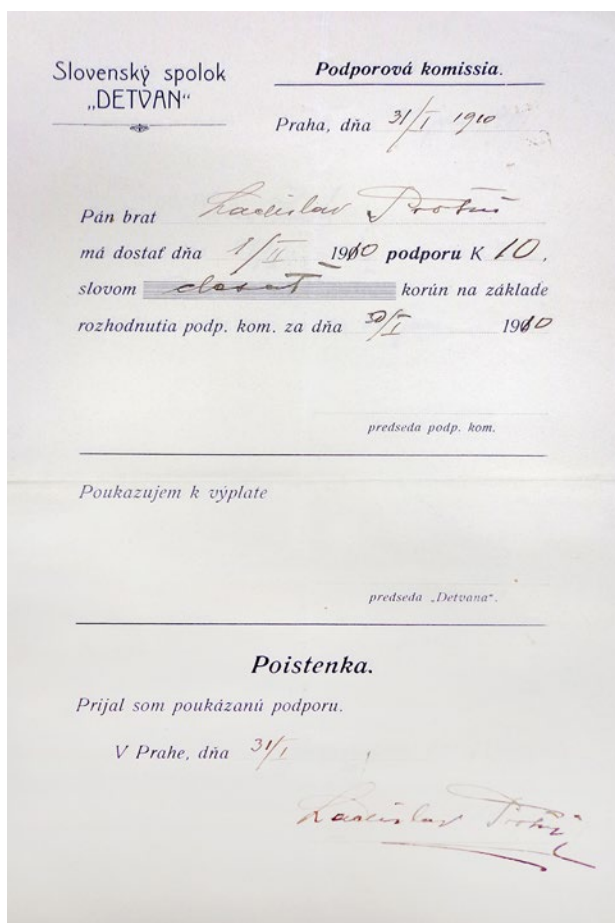 Slovenský spolok
„DETVAN“
Podporová komissia.
Praha, dňa 31/I 1910
Pán brat Ladislav
má dostať dňa 1/II 1910 podporu K 10,
slovom desať korún na základe
rozhodnutia podp. kom. za dňa 30/I 1910
predseda podp. kom.
Poukazujem k výplate
predseda „Detvana“.
Poistenka.
Prijal som poukázanú podporu.
V Prahe, dňa 31/I
Ladislav